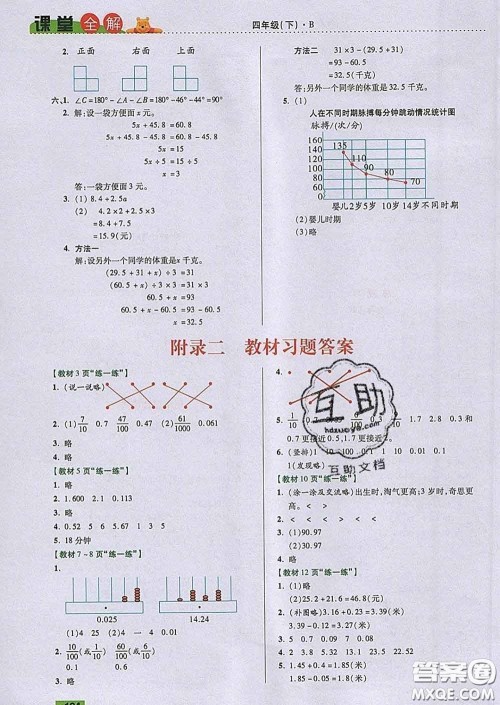 课堂全解
四年级(下)·B
2. 正面 右面 上面
六、1. ∠C=180°-∠A-∠B=180°-46°-44°=90°
2. 解：设一袋方便面 x 元。
5x+45.8=60.8
5x+45.8-45.8=60.8-45.8
5x=15
5x÷5=15÷5
x=3
答：一袋方便面 3 元。
3. (1) 8.4+2.9a
(2) 4.2×2+2.5×3
=8.4+7.5
=15.9(元)
4. 方法一
解：设另外一个同学的体重是 x 千克。
(29.5+31+x)÷3=31
(29.5+31+x)÷3×3=31×3
60.5+x=93
60.5+x-60.5=93-60.5
x=32.5
答：另外一个同学的体重是 32.5 千克。
方法二 31×3-(29.5+31)
=93-60.5
=32.5(千克)
答：另外一个同学的体重是 32.5 千克。
5. (1)
人在不同时期脉搏每分钟跳动情况统计图
脉搏/(次/分)
135
110
90
80
70
0
婴儿 2岁 5岁 10岁 14岁 不同时期
(2) 婴儿时期
(3) 略
附录二 教材习题答案
【教材 3 页“练一练”】
1. (说一说略)
2. (1) 7/10 0.7 47/100 0.47 (2) 61/1000 0.061
3. 略
4. 略
【教材 5 页“练一练”】
1. 略
2. 1.600 2.01 0.113
3. 略
4. 0.52 5.67 6 15 0.46
5. 18 分钟
【教材 7~8 页“练一练”】
1.
0.025 14.24
(1) 4 25 (2) 4
2. 10/100(或1/10) 60/100(或6/10)
3. 略
4.
5. 1/10 0.7 1.1 2.8 0.3 和
0.7 更接近 0.5, 1.7 更接近
6. (竖排)
1 (发现略)
【教材 10 页“练一练”】
1. (涂一涂及交流略) 出生时，淘气更高；3 岁时，奇思更高。
2. < < < < < <
3. (1) 90.97
(2) 90.97
4. 略
【教材 12 页“练一练”】
1. 略
2. (补图略) 3.16+0.23=3.39(米)
3. 3.39+0.06=3.45(米)
4. (1) 略
(2) 25.2+21.6=46.8(元)
5. 1.45+0.4=1.85(米)
互助
hdzuoye.com
互助文档
答案圈
MXQE.COM